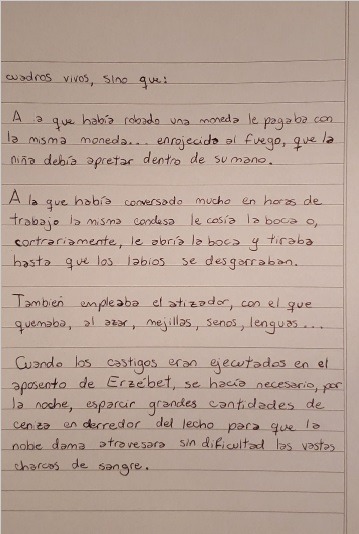 cuadros vivos, sino que:
A la que había robado una moneda le pagaba con
la misma moneda... enrojecida al fuego, que la
niña debía apretar dentro de su mano.
A la que había conversado mucho en horas de
trabajo la misma condesa le cosía la boca o,
contrariamente, le abría la boca y tiraba
hasta que los labios se desgarraban.
También empleaba el atizador, con el que
quemaba, al azar, mejillas, senos, lenguas...
Cuando los castigos eran ejecutados en el
aposento de Erzébet, se hacía necesario, por
la noche, esparcir grandes cantidades de
ceniza en derredor del lecho para que la
noble dama atravesara sin dificultad las vastas
charcos de sangre.